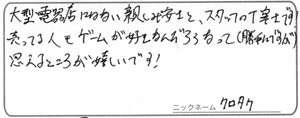 大型電器店にはない親しみ安さと、スタッフの丁寧さです
売ってる人もゲームが好きなんだろうなって(勝手にですが)
思えるところが嬉しいです!
ニックネーム クロタク